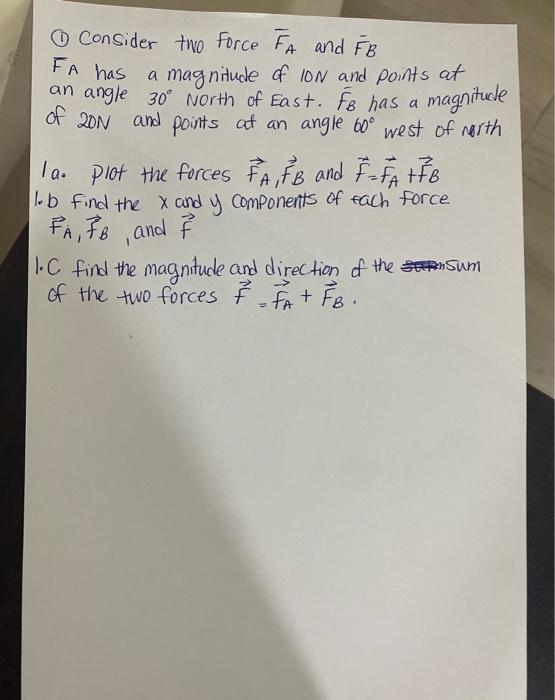 ① Consider two Force F̅A and F̅B
FA has a magnitude of 10N and points at
an angle 30° North of East. F̅B has a magnitude
of 20N and points at an angle 60° west of north
1a. Plot the forces F⃗A, F⃗B and F⃗=F⃗A+F⃗B
1.b Find the x and y components of each force
F⃗A, F⃗B, and F⃗
1.C find the magnitude and direction of the sum
of the two forces F⃗=F⃗A+F⃗B.